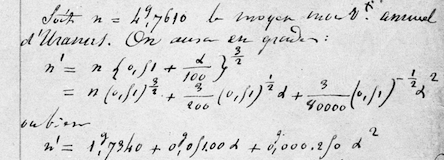 Soit n = 4g,7610 le moyen mouvt. annuel
d'Uranus. On aura en grades :
n' = n {0,51 + α/100}^{3/2}
= n (0,51)^{3/2} + 3/200 (0,51)^{1/2} α + 3/80000 (0,51)^{-1/2} α²
ou bien
n' = 1g,7340 + 0g,05100 α + 0g,000.250 α²